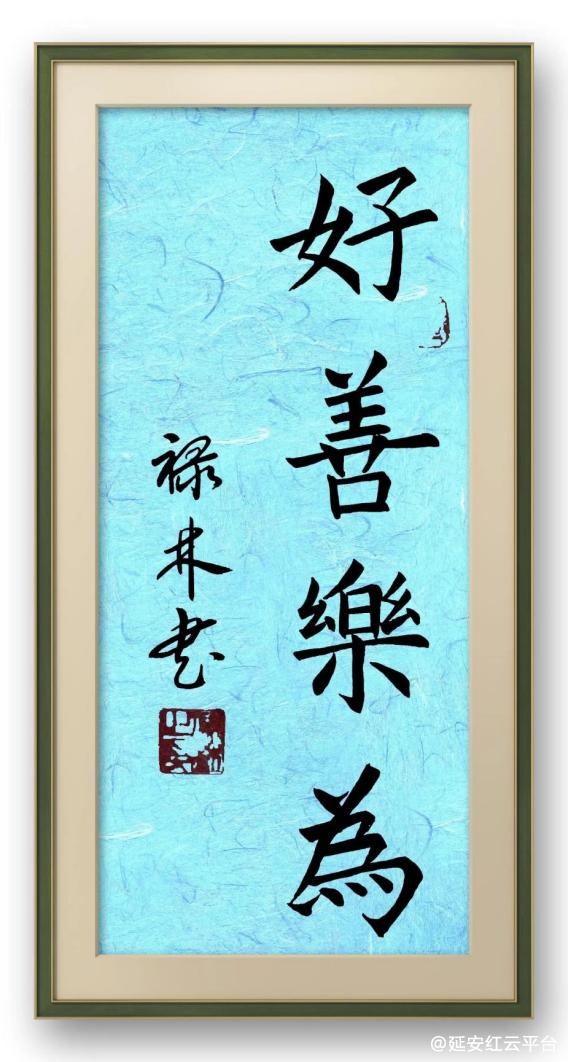 好善樂為
禄林书
@延安红云平台